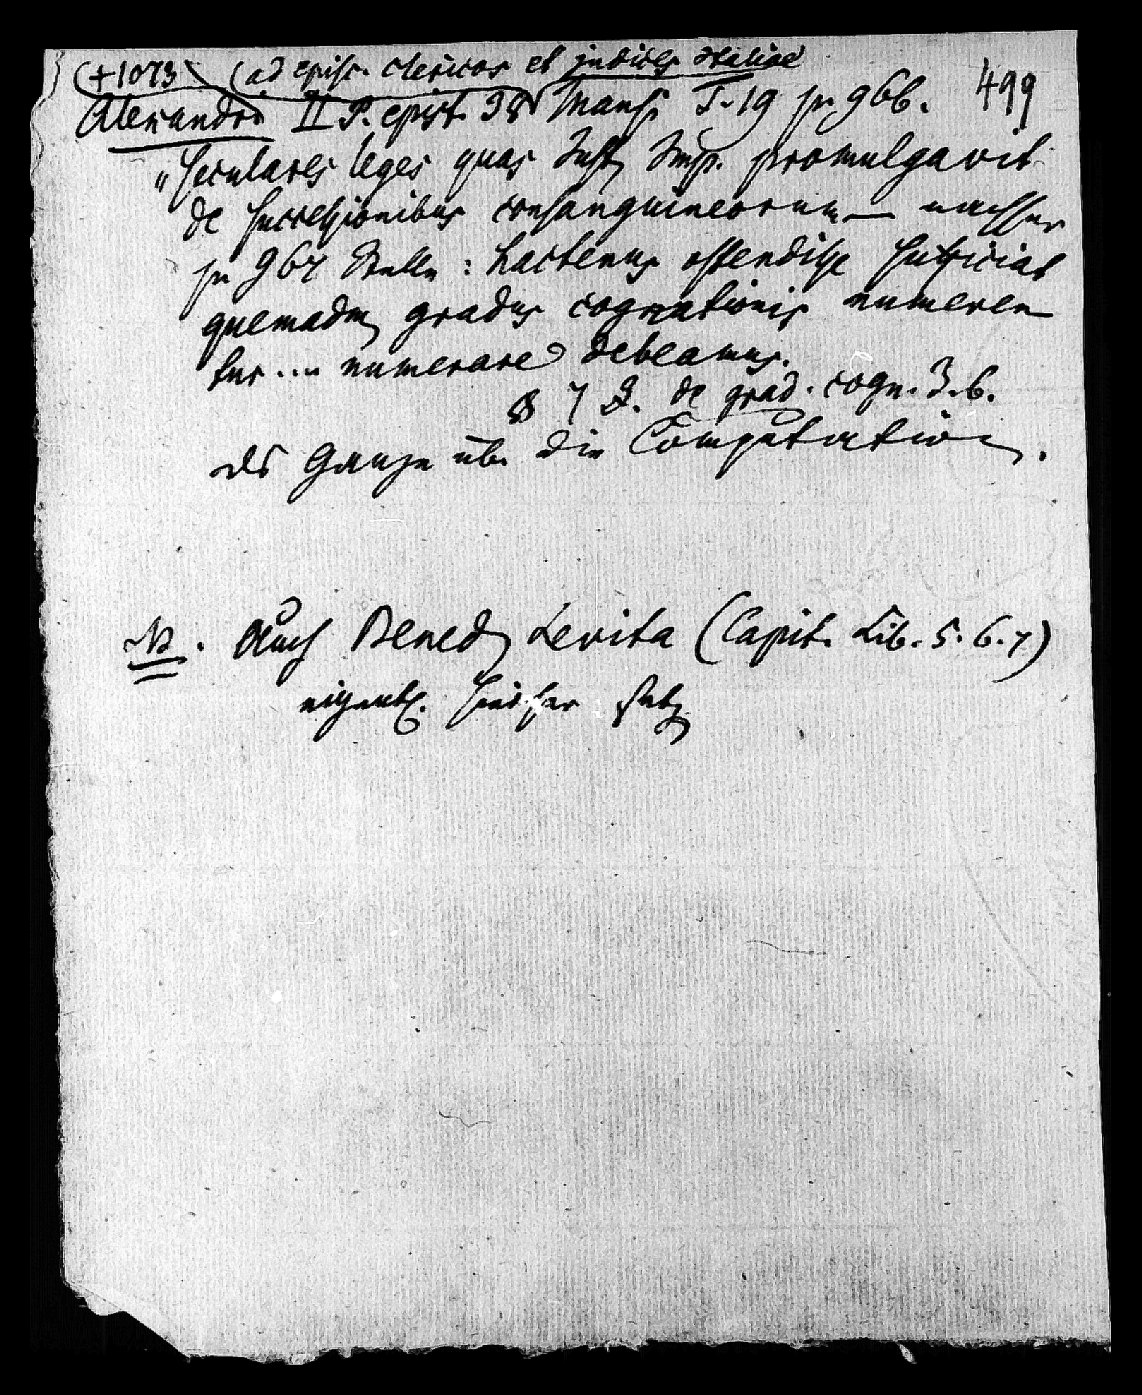 (+1073) (ad episc. clericos et judices Italiae
499
Alexander II P. epist. 38 Mansi T. 19 p. 966.
"seculares leges quas Just. Imp. promulgavit
de successionibus consanguineorum — nachher
p 967 Stelle: hactenus ostendisse sufficiat
quemadm gradus cognationis numeren
tur ... numerare debeamus.
§ 7 J. de grad. cogn. 3.6.
Ds Ganze üb. die Computation.
NB. Auch Bened Levita (Capit. Lib. 5. 6. 7)
eigentl. hierher